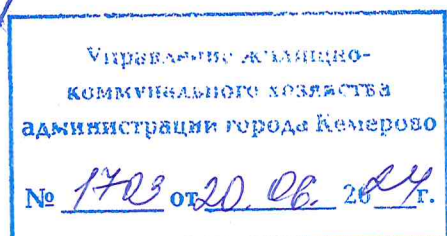 Управление жилищно-
коммунального хозяйства
администрации города Кемерово
№ 1703 от 20.06. 2024г.